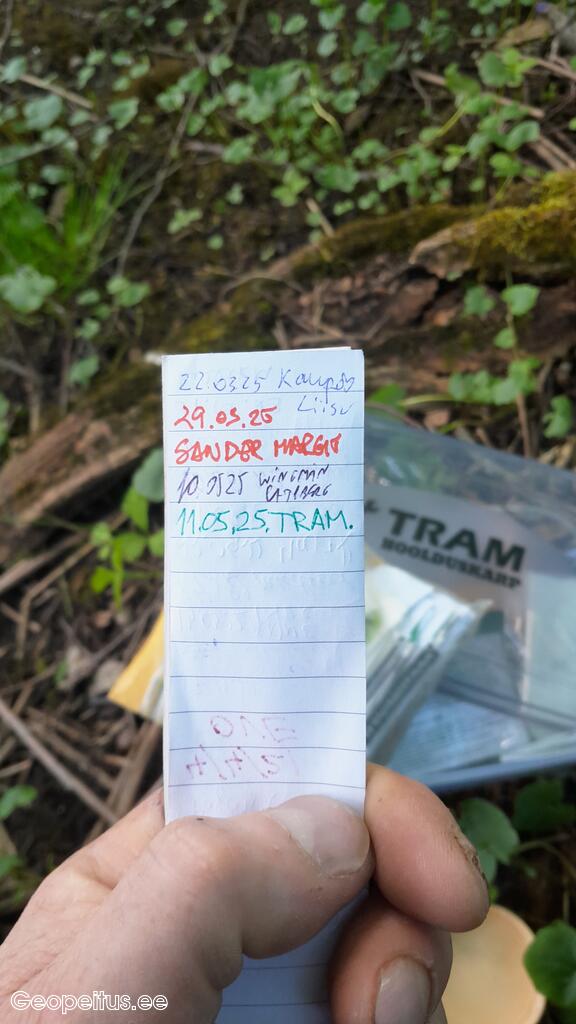 22.0325 Kaupo
Liisu
29.03.25
SANDER MARGIT
10.0525 WINGMAN
11.05.25. TRAM.
TRAM
HOOLDUSKARP
OVE
Geopeitus.ee